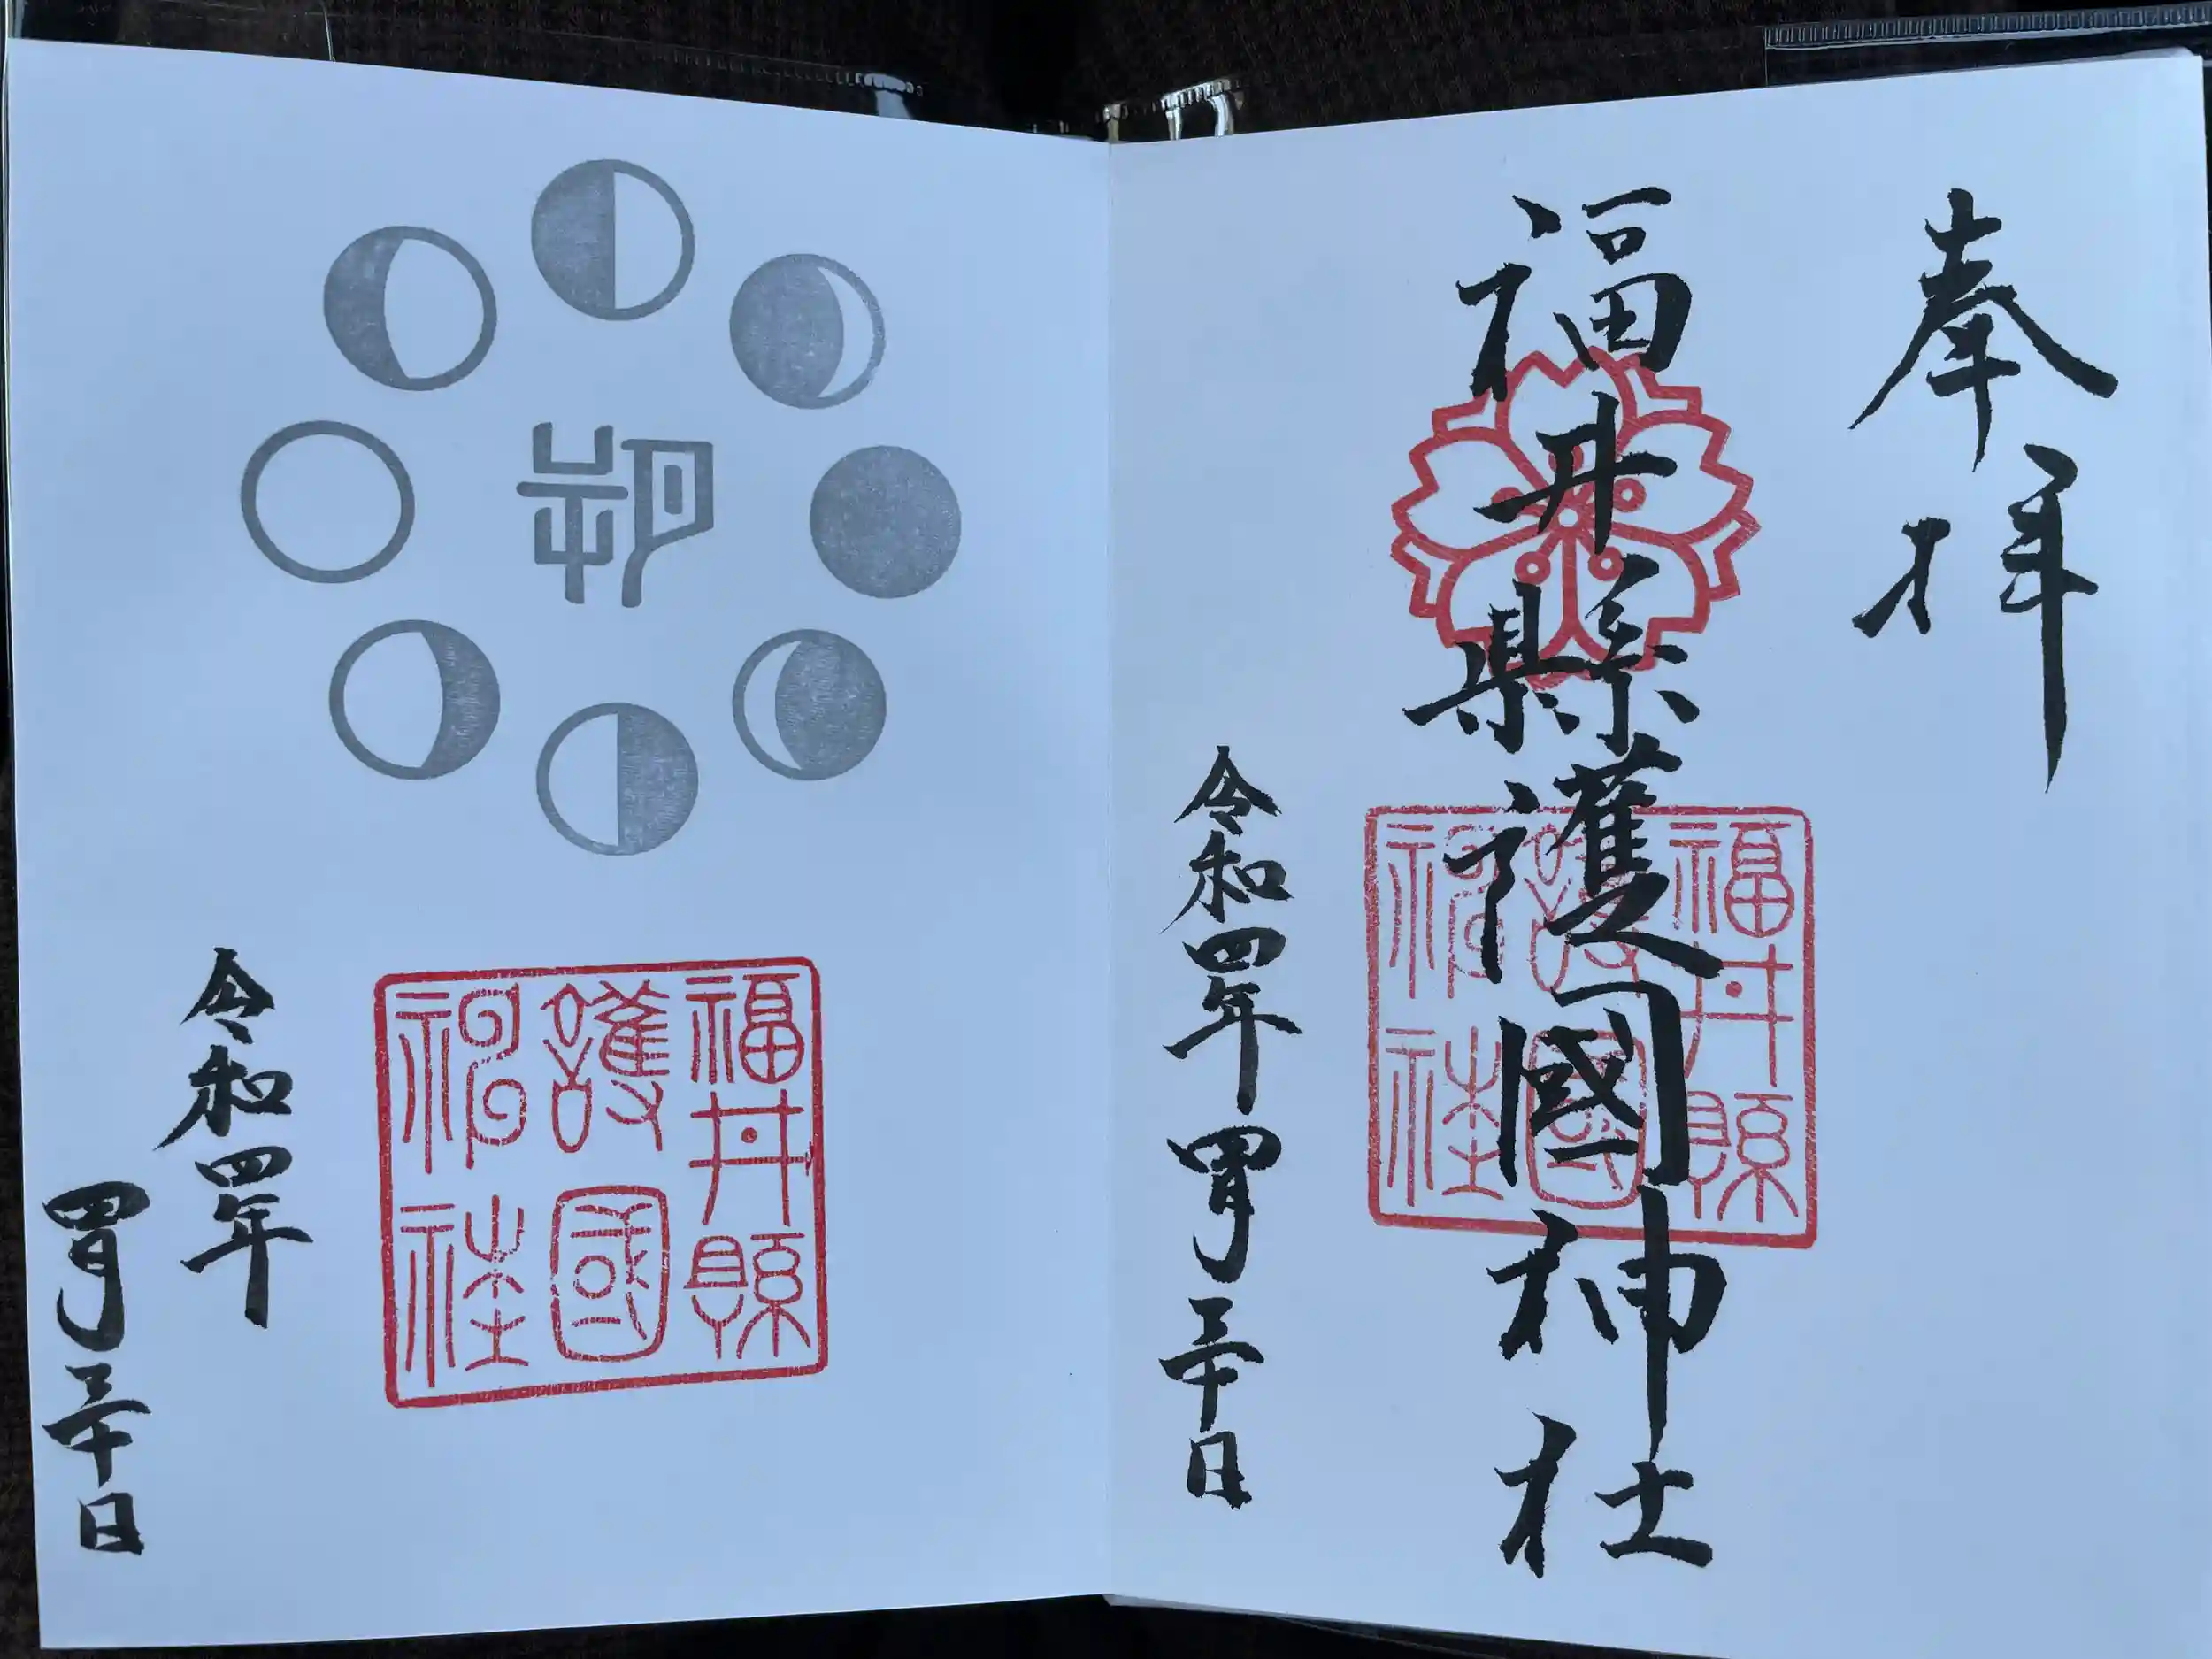 奉拝
福井縣護國神社
福井縣
護國
神社
令和四年四月三十日
朔
福井縣
護國
神社
令和四年
四月三十日